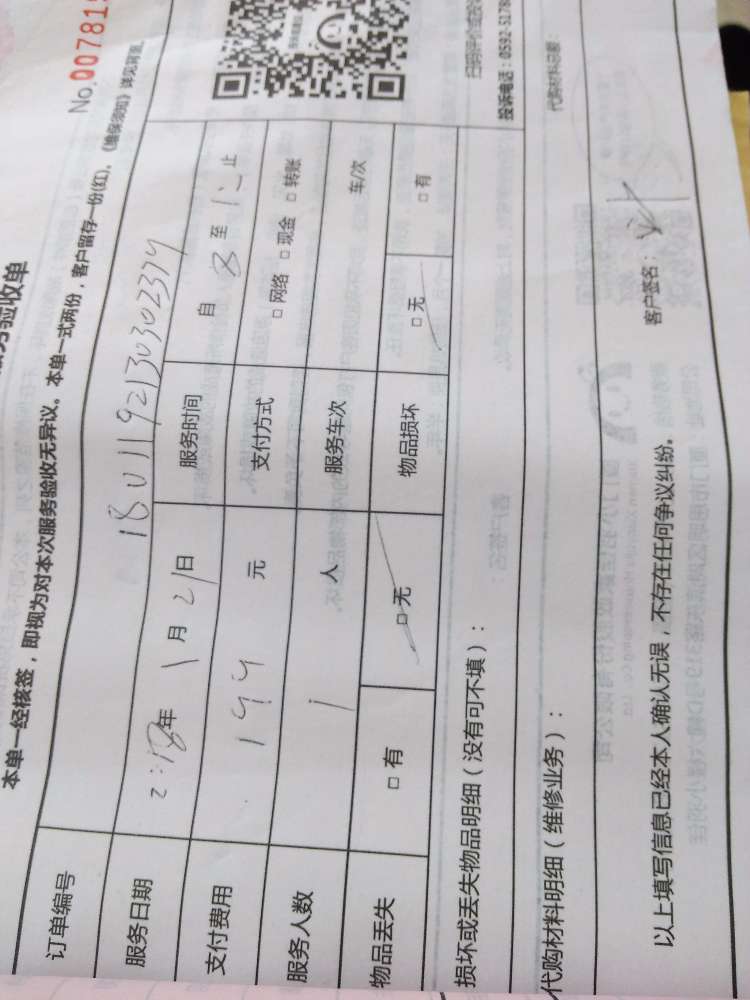 务验收单
No.007819
本单一经核签，即视为对本次服务验收无异议。本单一式两份，客户留存一份(红)，《维保须知》详见背面。
订单编号 180119213030 2374
服务日期 2018年1月21日 服务时间 自 8 至 12 止
支付费用 199 元 支付方式 □ 网络 □ 现金 □ 转账
服务人数 1 人 服务车次 车/次
物品丢失 □ 有 □ 无 物品损坏 □ 无 □ 有
损坏或丢失物品明细（没有可不填）：
扫码评价或投诉
投诉电话：0592-5178
代购材料明细（维修业务）：
代购材料总额：
以上填写信息已经本人确认无误，不存在任何争议纠纷。
客户签名：